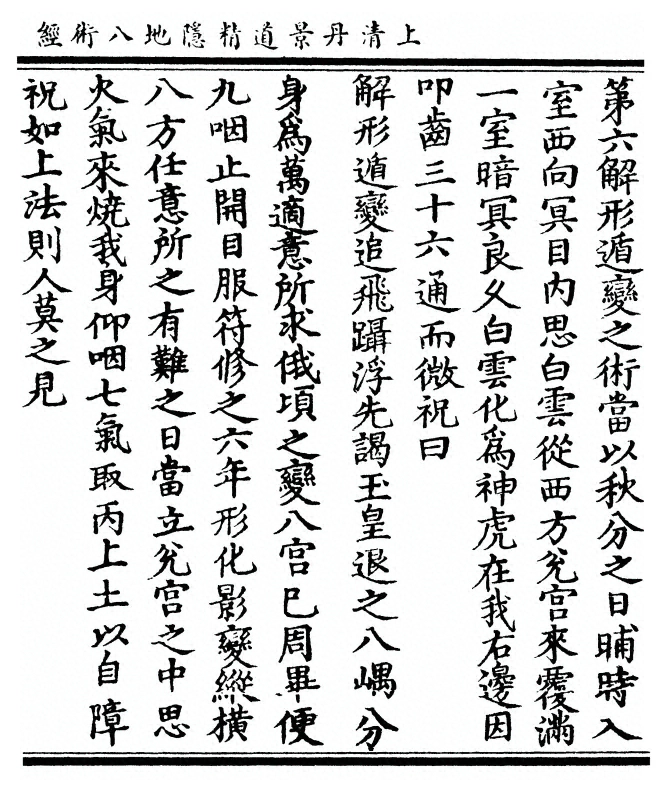 上清丹景道精隱地八術經
第六解形遁變之術當以秋分之日晡時入
室西向冥目內思白雲從西方兊宮來覆滿
一室暗冥良乆白雲化爲神虎在我右邊因
叩齒三十六通而微祝曰
解形遁變追飛躡浮先謁玉皇退之八嵎分
身爲萬適意所求俄頃之變八宮巳周畢便
九咽止開目服符修之六年形化影變縱橫
八方任意所之有難之日當立兊宮之中思
火氣來燒我身仰咽七氣取丙上土以自障
祝如上法則人莫之見